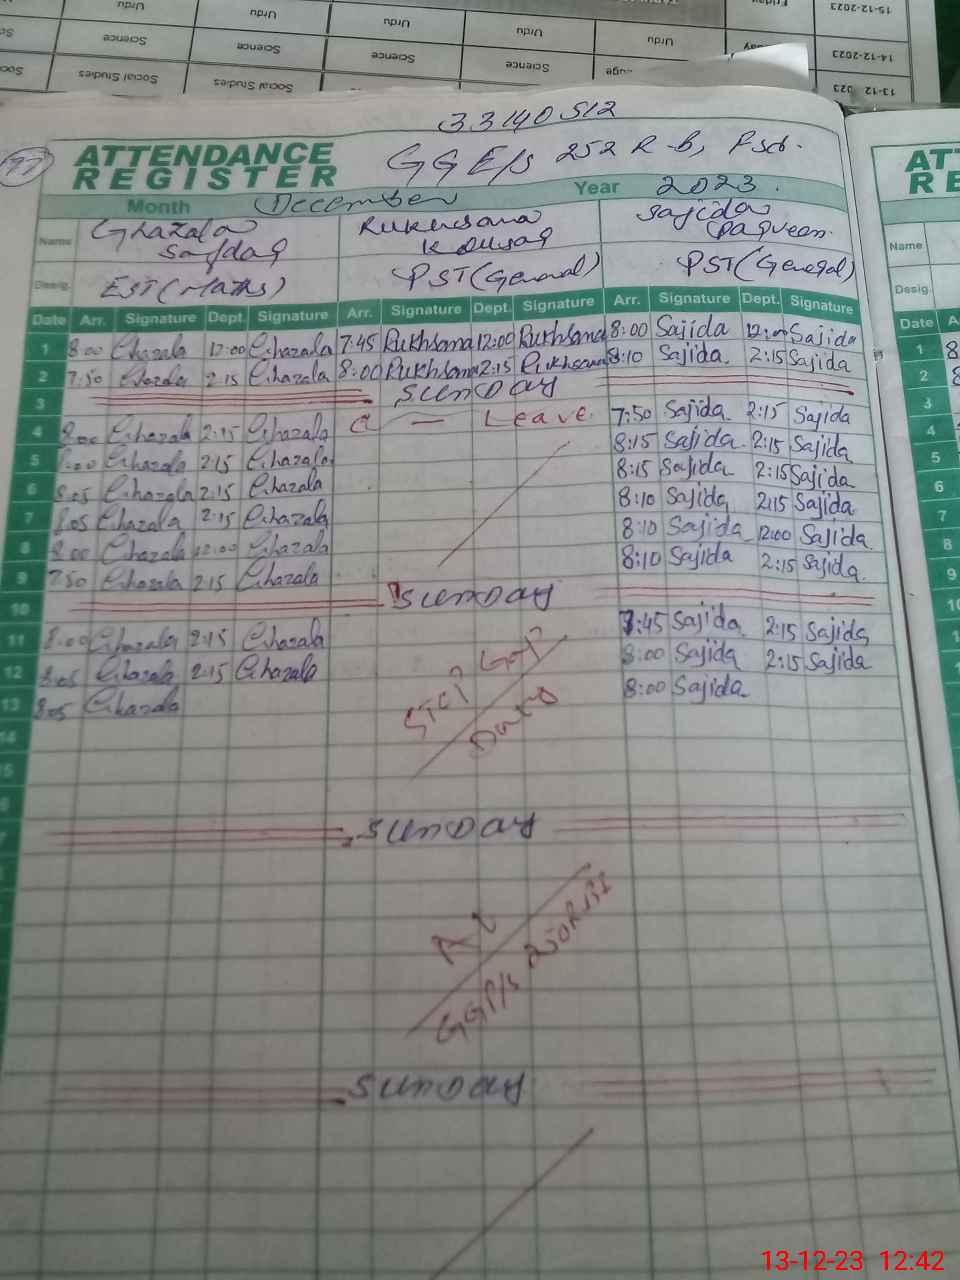 15-12-2023 Friday Urdu Urdu Urdu
14-12-2023 Urdu Urdu Science Science Science
13-12 023 Science Social Studies Social Studies Social Studies
33140512
97
ATTENDANCE
REGISTER
GGE/s 252 R-b, Fsd.
Month December Year 2023.
Name Ghazala Safdar Rukhsana Kousar Sajida Parveen.
Desig. EST (Maths) PST (General) PST (General)
Date Arr. Signature Dept. Signature Arr. Signature Dept. Signature Arr. Signature Dept. Signature
1 8:00 Ghazala 12:00 Ghazala 7:45 Rukhsana 12:00 Rukhsana 8:00 Sajida 12:00 Sajida
2 7:50 Ghazala 2:15 Ghazala 8:00 Rukhsana 2:15 Rukhsana 8:10 Sajida. 2:15 Sajida
3 SUNDAY
4 8:00 Ghazala 2:15 Ghazala C — Leave. 7:50 Sajida. 2:15 Sajida
5 8:00 Ghazala 2:15 Ghazala. 8:15 Sajida. 2:15 Sajida
6 8:05 Ghazala 2:15 Ghazala 8:15 Sajida 2:15 Sajida
7 8:05 Ghazala 2:15 Ghazala 8:10 Sajida 2:15 Sajida
8 8:00 Ghazala 12:00 Ghazala 8:10 Sajida 12:00 Sajida.
9 7:50 Ghazala 2:15 Ghazala 8:10 Sajida 2:15 Sajida.
10 SUNDAY
11 8:00 Ghazala 2:15 Ghazala 7:45 Sajida 2:15 Sajida
12 8:05 Ghazala 2:15 Ghazala 8:00 Sajida 2:15 Sajida
13 8:05 Ghazala 8:00 Sajida
14
Duty
15
SUNDAY
At
GGP/s 250 RB1
SUNDAY
ATT
RE
Name
Desig.
Date A
1 8
2 8
3
4
5
6
7
8
9
10
11
13-12-23 12:42